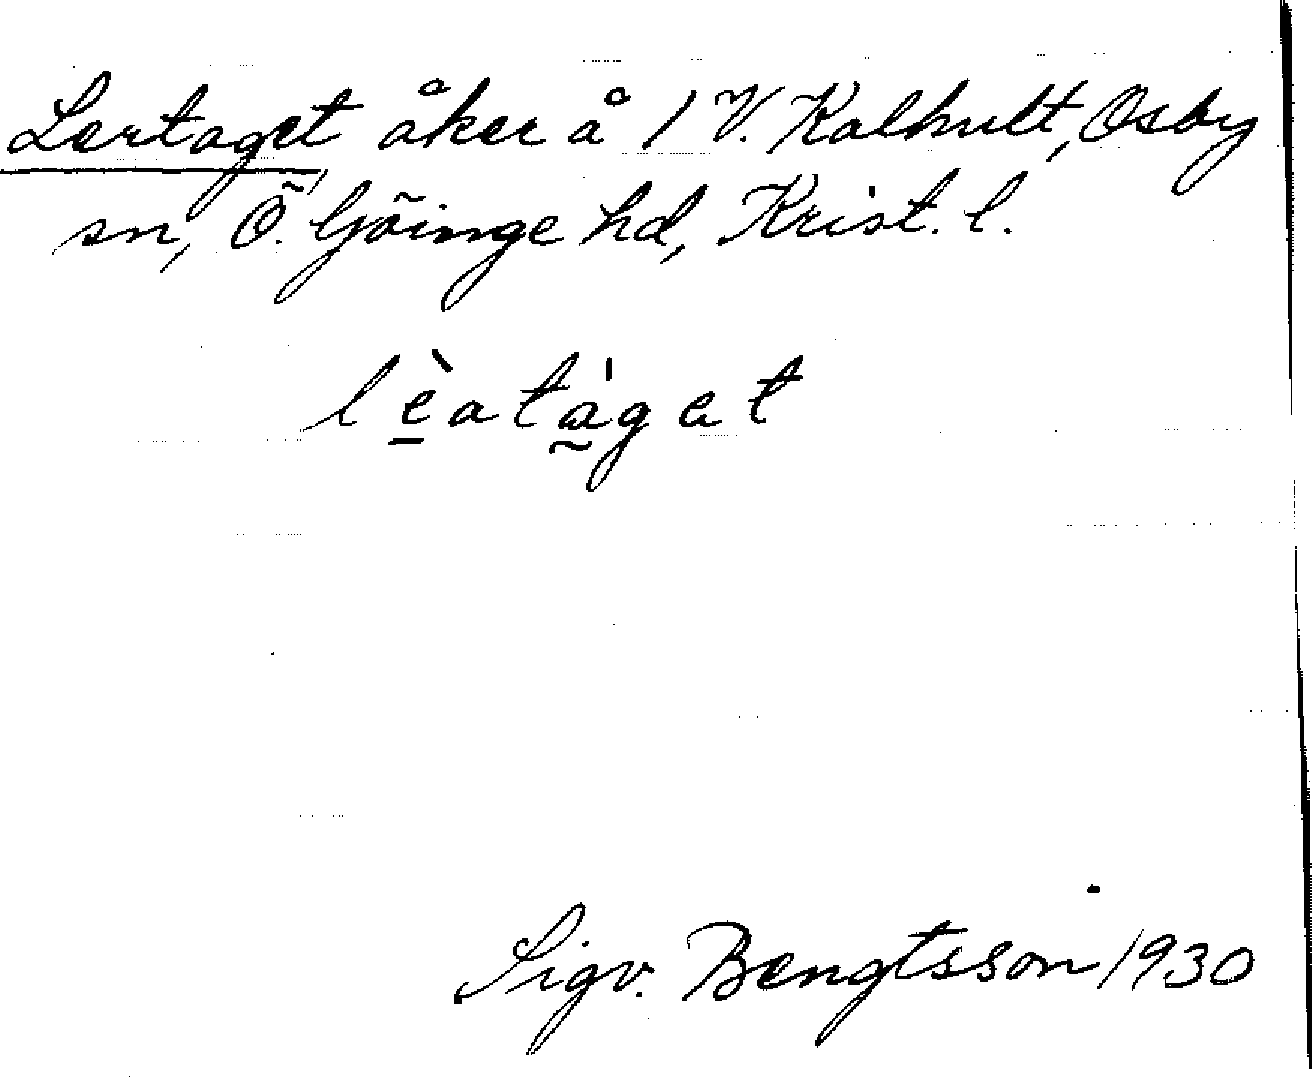 Lertaget åker å 1 V. Kalhult, Osby
sn, Ö. Göinge hd, Krist. l.
lèatàget
Sigv. Bengtsson 1930